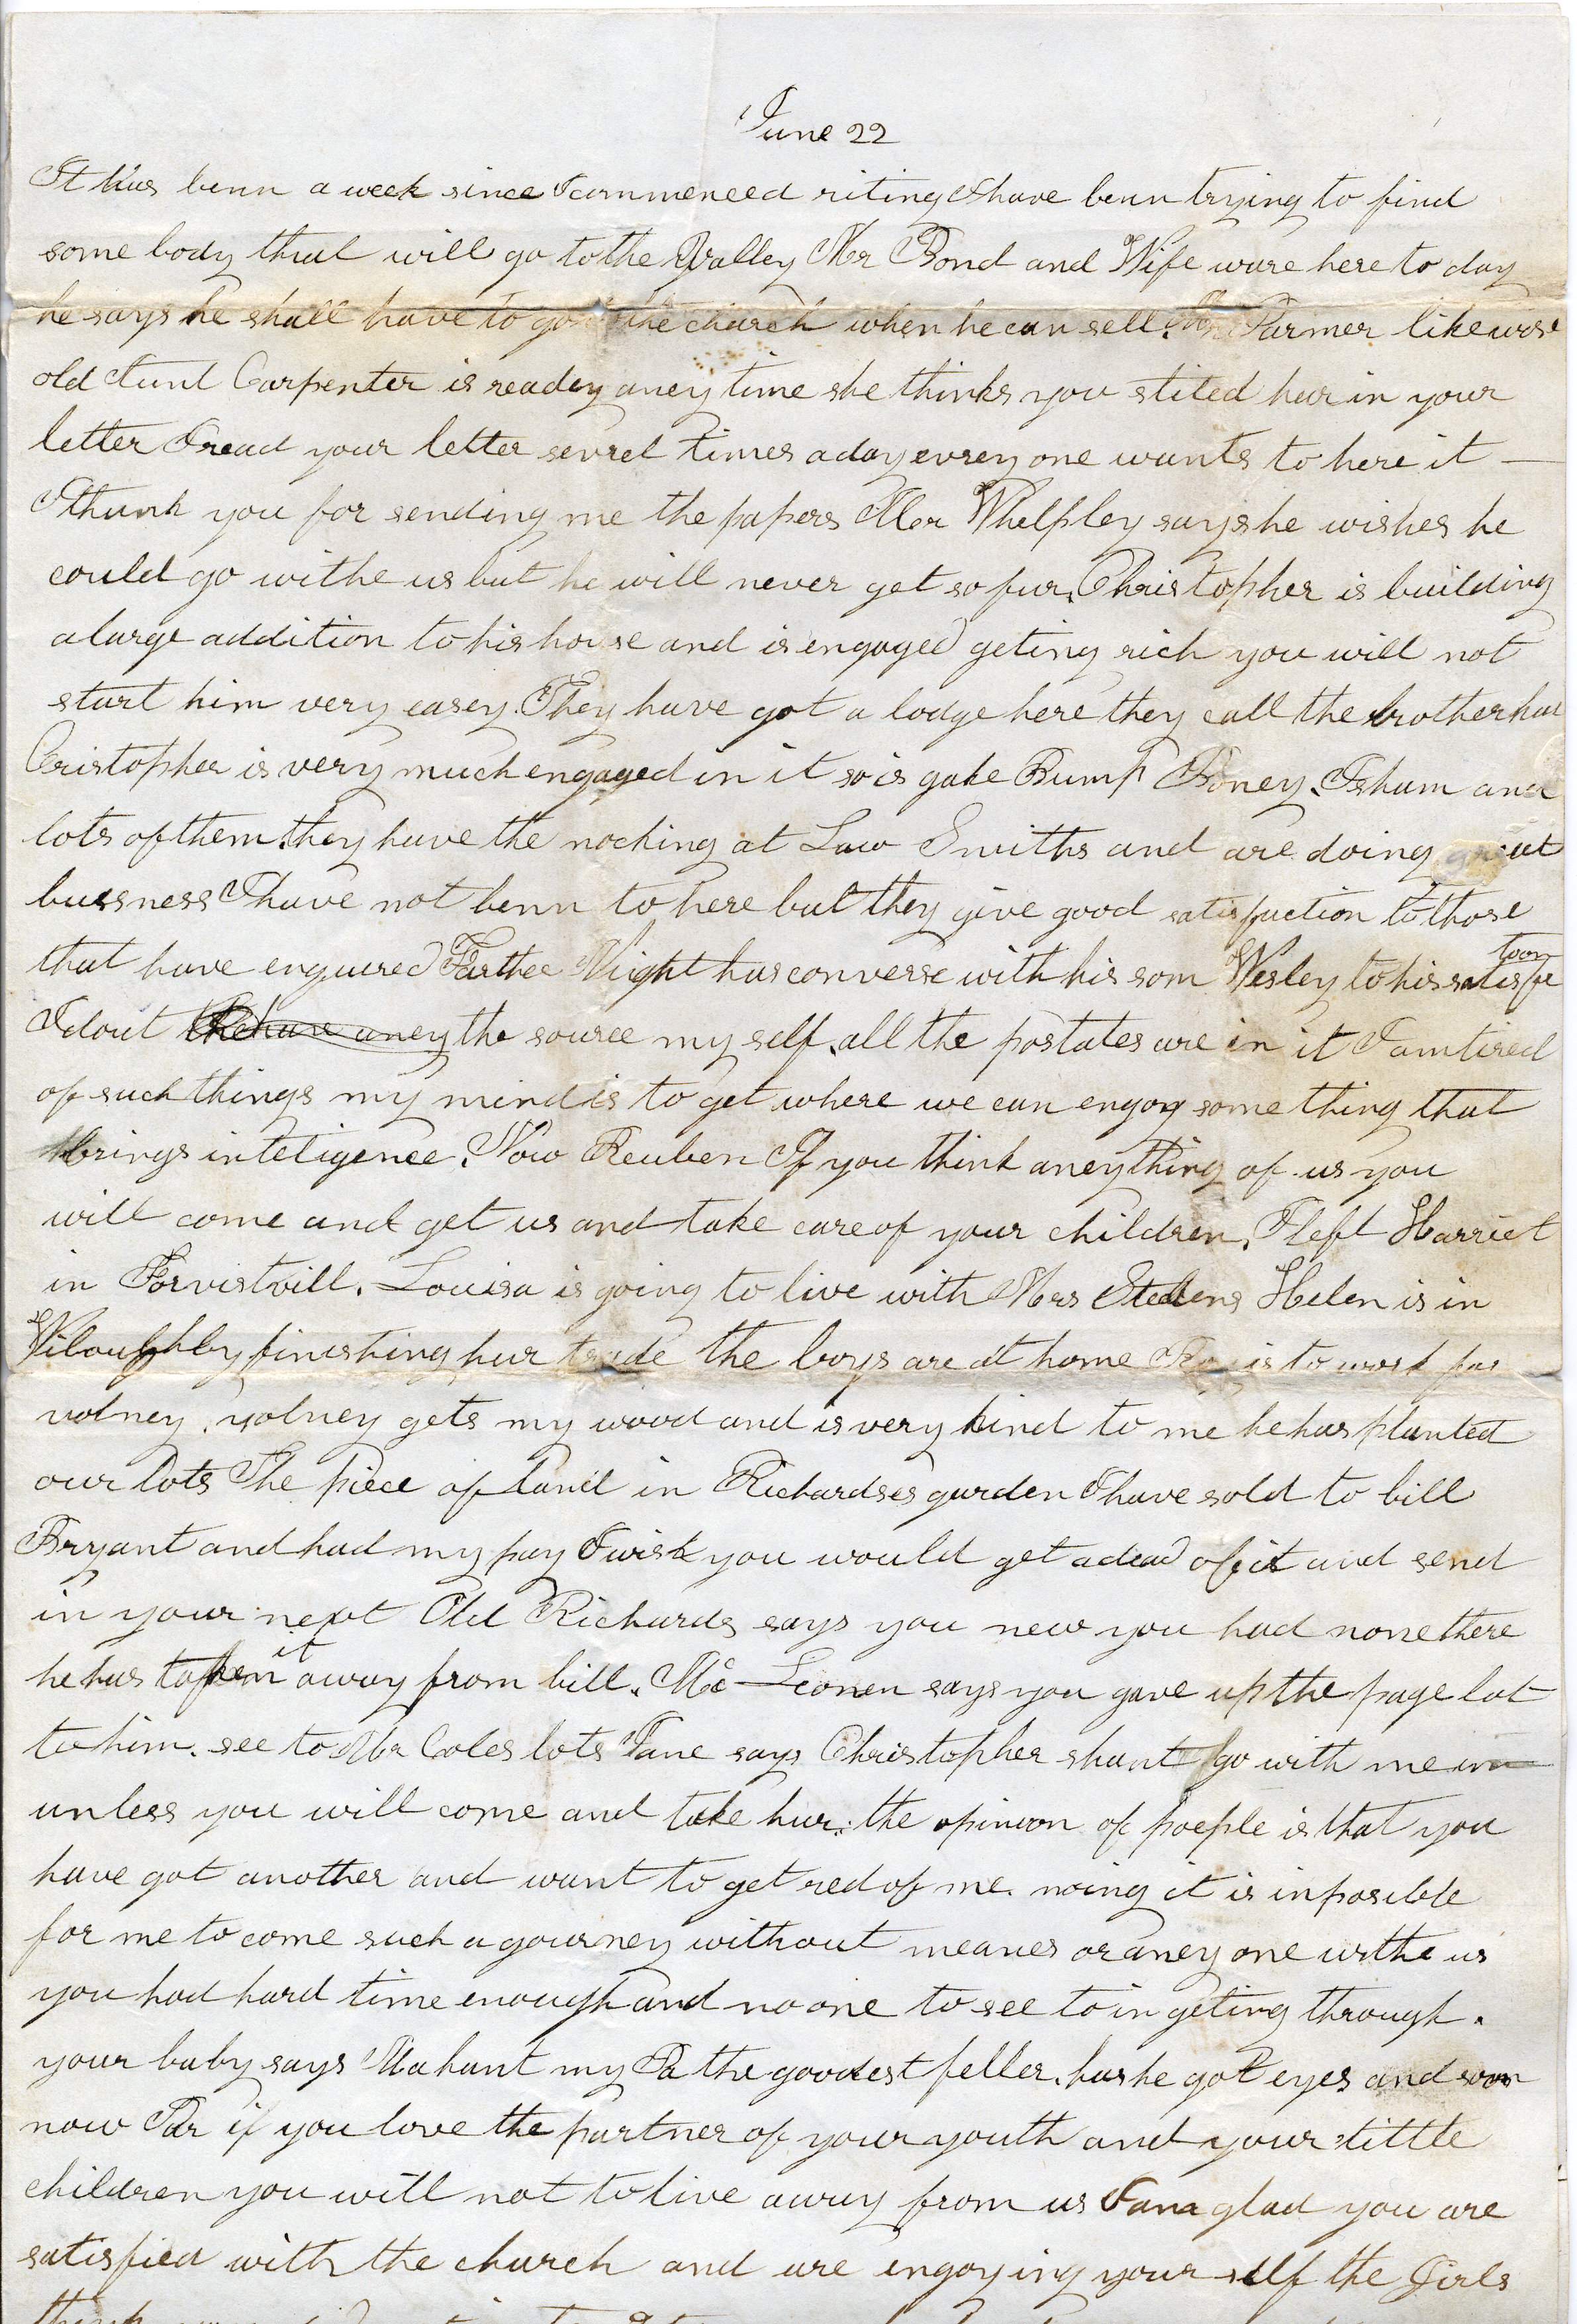 June 22
It has benn a week since I commenced riting I have benn trying to find
some body that will go to the Valley Mr Bond and Wife ware here to day
he says he shall have to go the church when he can sell. Parmer likewise
old Aunt Carpenter is readey aney time she thinks you stiled hur in your
letter I read your letter sevrel times a day evrey one wants to here it —
I thank you for sending me the papers Mr Whelpley says he wishes he
could go withe us but he will never get so fur. Christopher is building
a large addition to his house and is engaged geting rich you will not
start him very easey. They have got a lodge here they call the brotherhud
Cristopher is very much engaged in it so is gabe Bump Boney. Isham and
lots of them. they have the nocking at Law Smiths and are doing great
bussness I have not benn to here but they give good satisfaction to those
that have enquired Farthee Wight has converse with his son Wesley to his satisfa
toon
I dout the source my self. all the postates are in it I am tired
of such things my mind is to get where we can engoy some thing that
brings inteligence. Now Reuben If you think aneything of us you
will come and get us and take care of your children. I left Harriet
in Forvistvill. Louisa is going to live with Mrs Stebens Helen is in
Wiloughby finishing hur trade the boys are at home is to work for
volney. volney gets my wood and is very kind to me he has planted
our lots The piece of land in Richardses garden I have sold to bill
Bryant and had my pay I wish you would get a dead of it and send
in your next Old Richards says you new you had none there
he has taken it away from bill. Mc Leonen says you gave up the page lot
to him. see to Mr Coles lots Jane says Christopher shant go with me un
unless you will come and take hur. the opinion of poeple is that you
have got another and want to get red of me. noing it is inposible
for me to come such a gourney without meanes or aney one withe us
you had hard time enough and no one to see to in geting through.
your baby says Ma hant my Pa the goodest feller. has he got eyes and soon
now Par if you love the partner of your youth and your little
children you will not to live away from us I am glad you are
satisfied with the church and are engoying your self the Girls